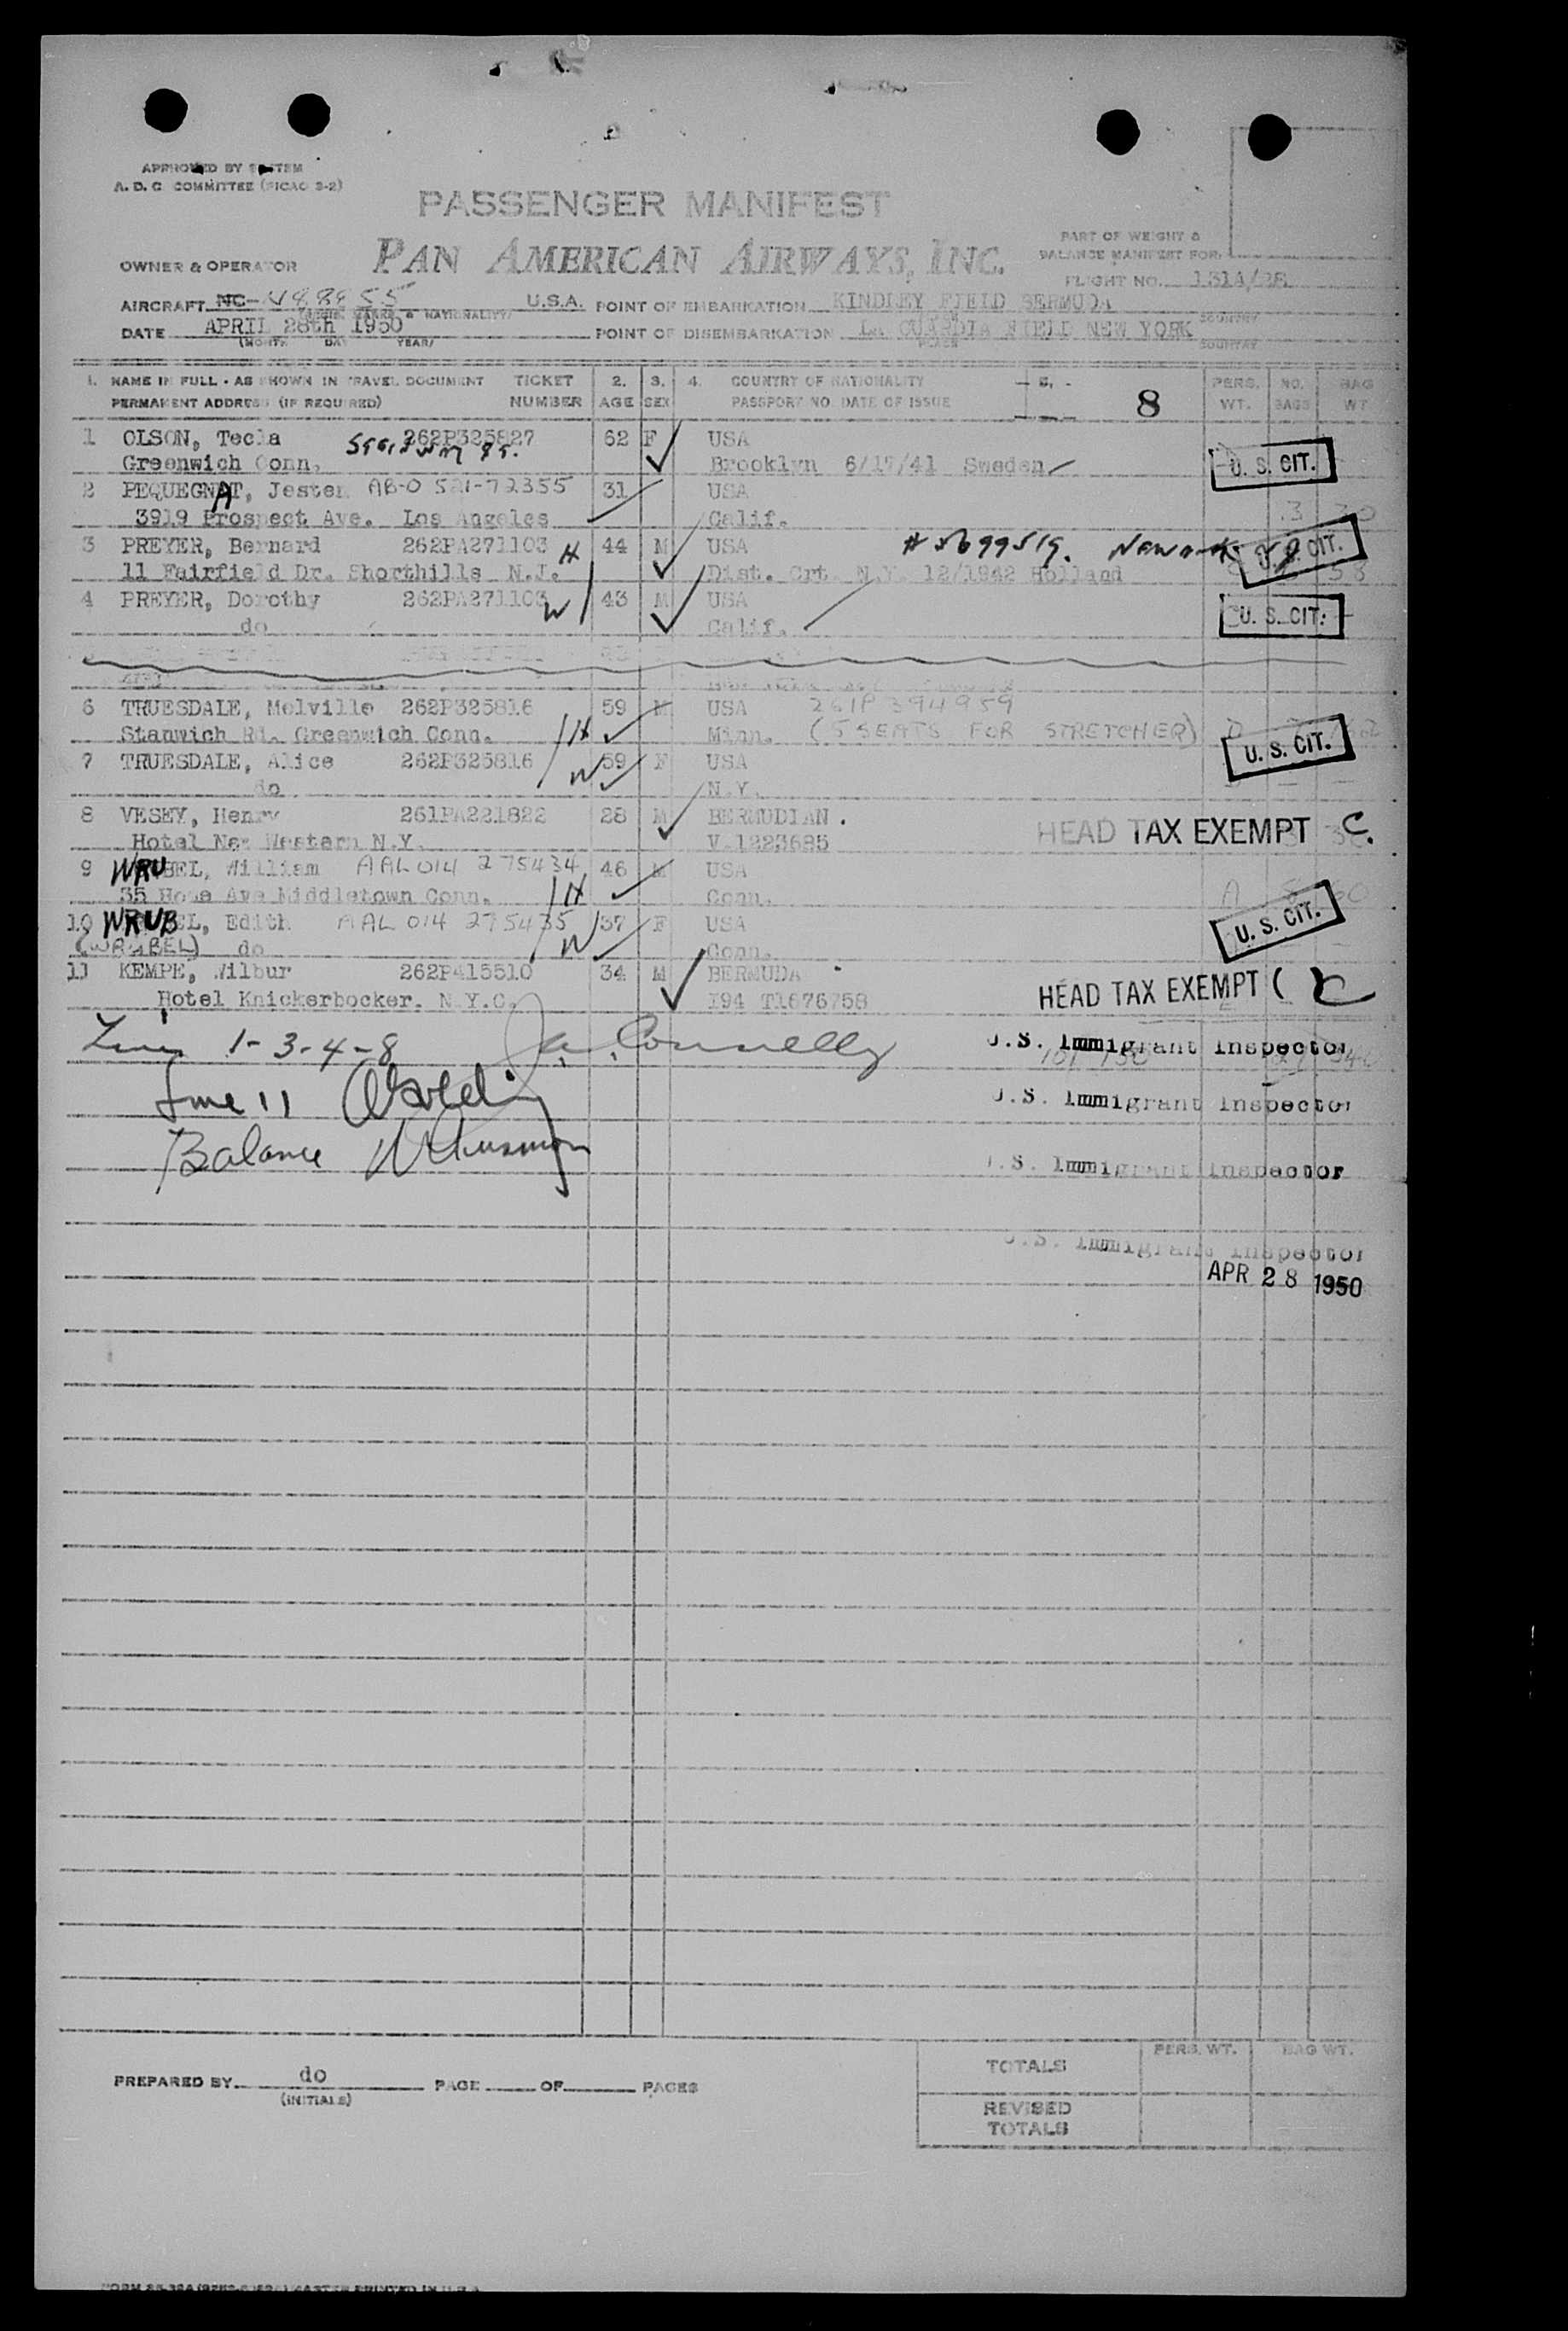 APPROVED BY SYSTEM
A. D. C. COMMITTEE (FICAO 3-2)
PASSENGER MANIFEST
OWNER & OPERATOR PAN AMERICAN AIRWAYS, INC.
PART OF WEIGHT &
BALANCE MANIFEST FOR
FLIGHT NO. 131A/28
AIRCRAFT NC- N88855 U.S.A. POINT OF EMBARKATION KINDLEY FIELD BERMUDA
COUNTRY
DATE APRIL 28th 1950 POINT OF DISEMBARKATION LA GUARDIA FIELD NEW YORK
(MONTH DAY YEAR) PLACE COUNTRY
1. NAME IN FULL - AS SHOWN IN TRAVEL DOCUMENT TICKET 2. 3. 4. COUNTRY OF NATIONALITY 5. PERS. NO. BAG
PERMANENT ADDRESS (IF REQUIRED) NUMBER AGE SEX PASSPORT NO. DATE OF ISSUE 8 WT. BAGS WT
1 OLSON, Tecla 262P325827 62 F USA
Greenwich Conn. Brooklyn 6/17/41 Sweden U. S. CIT.
2 PEQUEGNAT, Jester AB-0 521-72355 31 USA
3919 Prospect Ave. Los Angeles Calif. 3 30
3 PREYER, Bernard 262PA271103 H 44 M USA # 5699519. Newark U. S. CIT.
11 Fairfield Dr. Shorthills N.J. Dist. Crt. N.Y. 12/1942 Holland 58
4 PREYER, Dorothy 262PA271103 W 43 M USA U. S. CIT.
do Calif.
6 TRUESDALE, Melville 262P325816 59 M USA 261P394959
Stanwich Rd. Greenwich Conn. H Minn. (5 SEATS FOR STRETCHER) U. S. CIT.
7 TRUESDALE, Alice 262P325816 W 59 F USA
do N.Y.
8 VESEY, Henry 261PA221822 28 M BERMUDIAN. HEAD TAX EXEMPT C.
Hotel New Western N.Y. V-1223685
9 WRUBEL, William AAL 014 275434 46 M USA
35 Home Ave Middletown Conn. H Conn. A 60
10 WRUBEL, Edith AAL 014 275435 37 F USA U. S. CIT.
(WRUBEL) do W Conn.
11 KEMPE, Wilbur 262P415510 34 M BERMUDA
Hotel Knickerbocker. N.Y.C. I94 T1676758 HEAD TAX EXEMPT ( C
Lines 1-3-4-8 J.A. Connelly U.S. Immigrant Inspector
Line 11 U.S. Immigrant Inspector
Balance U.S. Immigrant Inspector
U.S. Immigrant Inspector
APR 28 1950
PREPARED BY do PAGE OF PAGES
(INITIALS)
PERS. WT. BAG WT.
TOTALS
REVISED
TOTALS